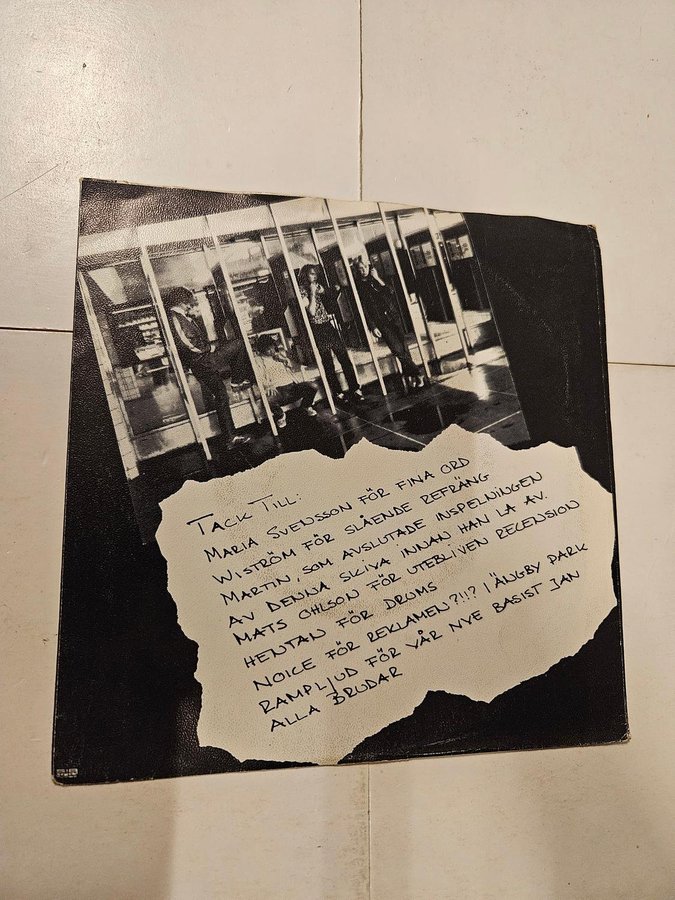 TACK TILL:
MARIA SVENSSON FÖR FINA ORD
WISTRÖM FÖR SLÅENDE REFRÄNG
MARTIN, SOM AVSLUTADE INSPELNINGEN
AV DENNA SKIVA INNAN HAN LA AV.
MATS OHLSON FÖR UTEBLIVEN RECENSION
HENTAN FÖR DRUMS
NOICE FÖR REKLAMEN?!!? I ÄNGBY PARK
RAMPLJUD FÖR VÅR NYE BASIST JAN
ALLA BRUDAR